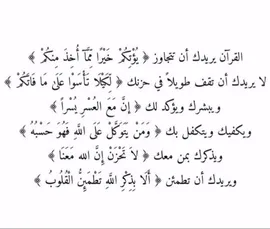 القرآن يريدك أن تتجاوز ﴿ يُؤْتِكُمْ خَيْرًا مِّمَّا أُخِذَ مِنكُمْ ﴾
لا يريدك أن تقف طويلاً في حزنك ﴿ لِّكَيْلَا تَأْسَوْا عَلَىٰ مَا فَاتَكُمْ ﴾
ويبشرك ويؤكد لك ﴿ إِنَّ مَعَ الْعُسْرِ يُسْراً ﴾
ويكفيك ويتكفل بك ﴿ وَمَنْ يَتَوَكَّلْ عَلَى اللَّهِ فَهُوَ حَسْبُهُ ﴾
ويذكرك بمن معك ﴿ لا تَحْزَنْ إِنَّ الله مَعَنَا ﴾
ويريدك أن تطمئن ﴿ أَلَا بِذِكْرِ اللَّهِ تَطْمَئِنُّ الْقُلُوبُ ﴾